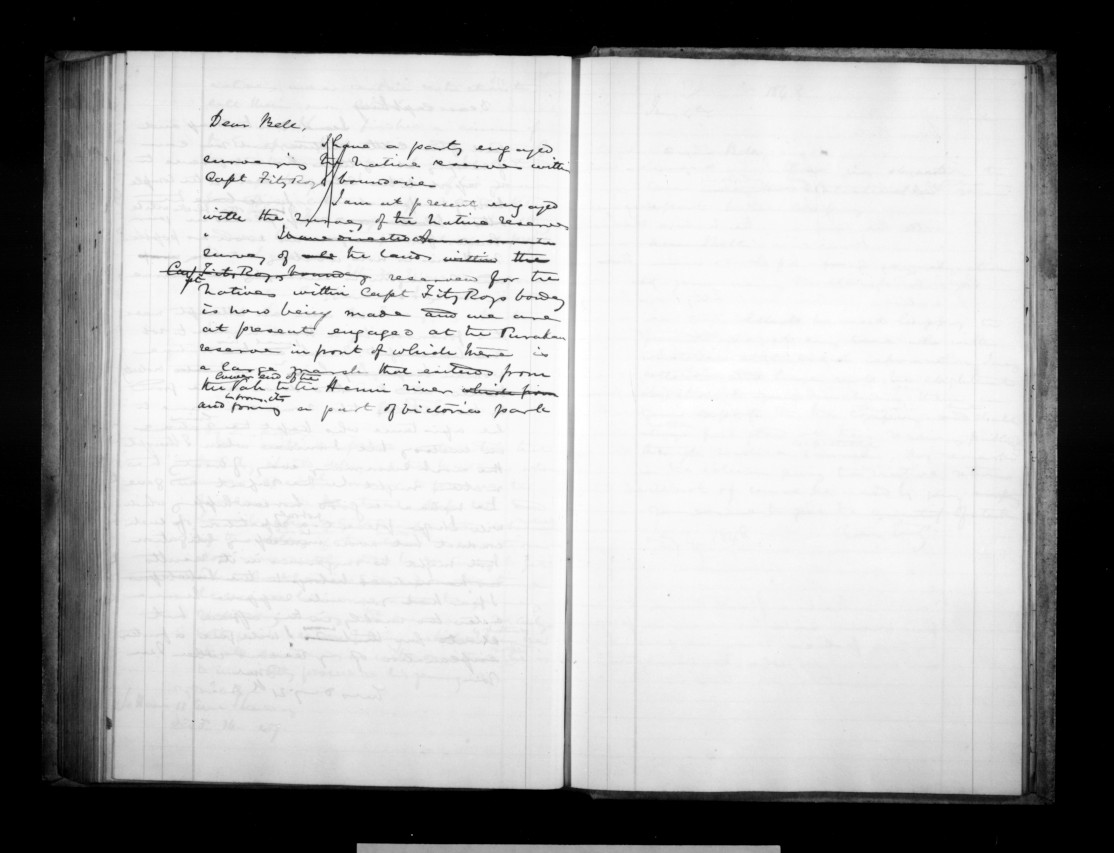 Dear Bell,
I have a party engaged
surveying the Native reserves within
Capt Fitz Roys boundaries
I am at present engaged
with the survey of the Native reserves
I have directed an accurate
survey of all the lands within the
Capt Fitz Roys boundary reserved for the
Natives within Capt Fitz Roys boundy
is now being made and we are
at present engaged at the
reserve in front of which there is
a large marsh that extends from
lower end of the
the Pah to the Henui river which from
and forms a part of Victorias park